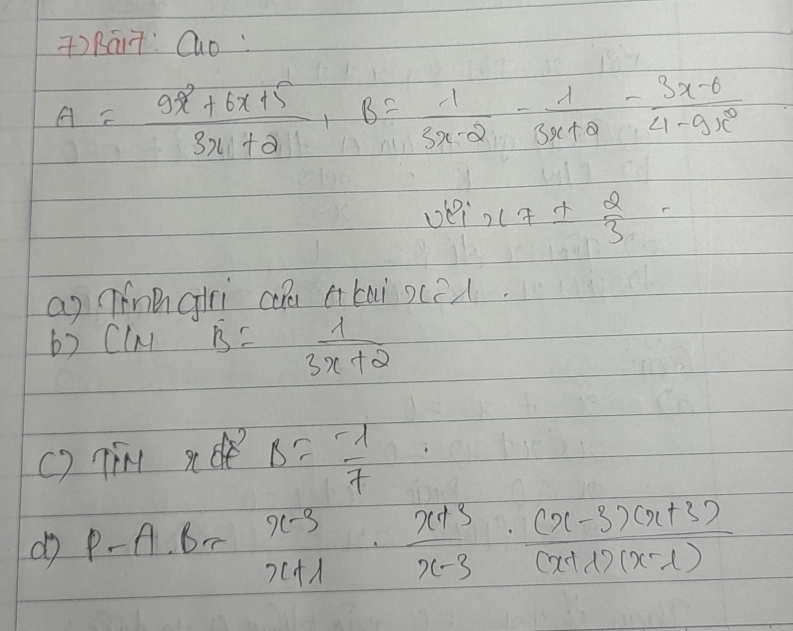 7) Bài 7: Cho :
A = (9x² + 6x + 5)/(3x + 2), B = 1/(3x - 2) - 1/(3x + 2) - (3x - 6)/(4 - 9x²)
với x ≠ ± 2/3 .
a) Tính gtri của A tại x = 1 .
b) C/M B = 1/(3x + 2)
c) Tìm x để B = -1/7 .
d) P = A . B = (x - 3)/(x + 1) . (x + 3)/(x - 3) . (x - 3)(x + 3)/(x + 1)(x - 1)